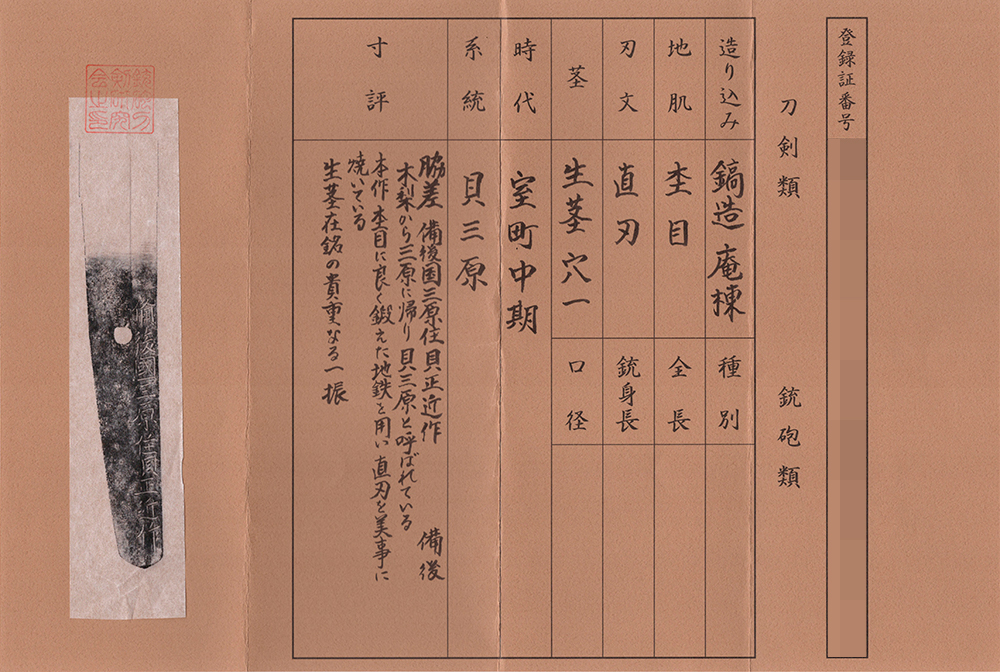 登録証番号
刀剣類
銃砲類
造り込み
鎬造庵棟
種別
地肌
杢目
全長
刃文
直刃
銃身長
茎
生茎穴一
口径
時代
室町中期
系統
貝三原
寸評
脇差 備後国三原住貝正近作 備後
木梨から三原に帰り貝三原と呼ばれている
本作杢目に良く鍛えた地鉄を用い直刃を美事に
焼いている
生茎在銘の貴重なる一振
備後國三原住貝正近作